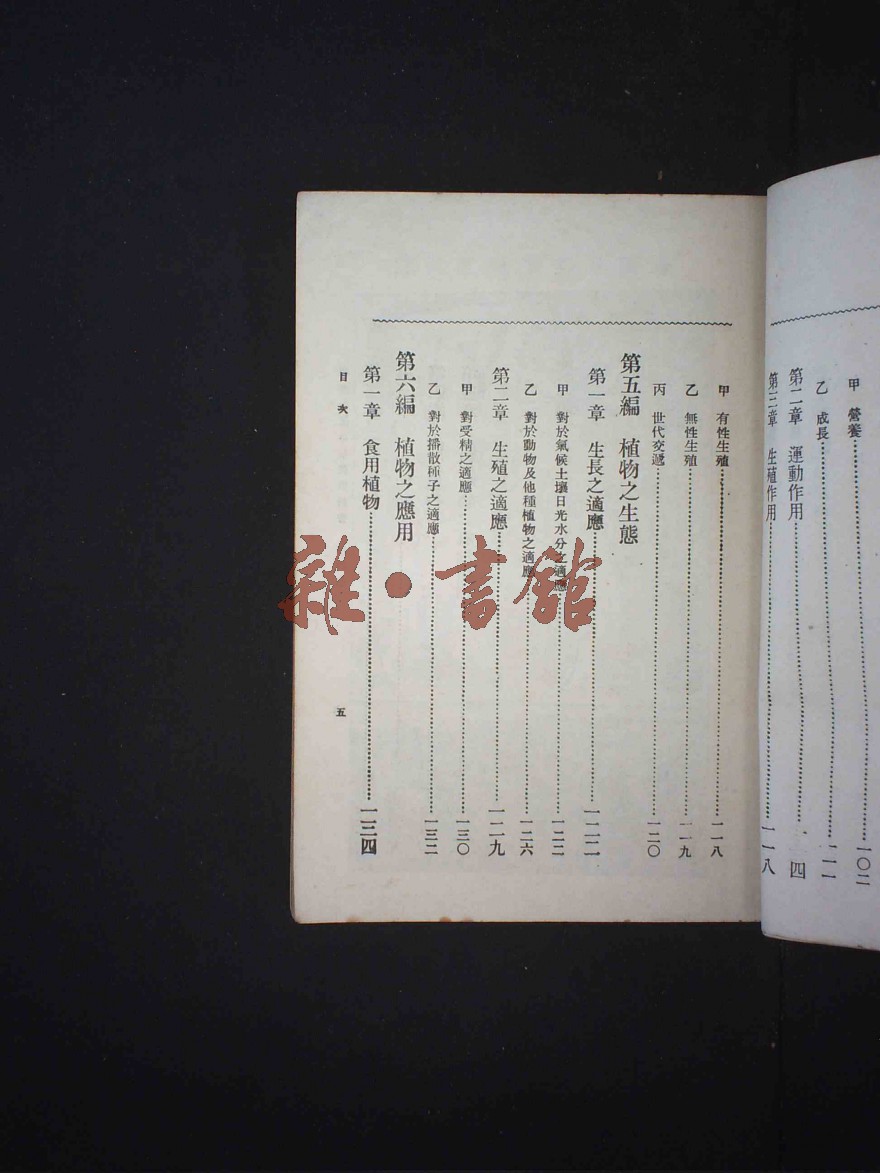 甲 營養……一〇二
乙 成長……一一一
第二章 運動作用……一四
第三章 生殖作用……一一八
甲 有性生殖……一一八
乙 無性生殖……一一九
丙 世代交遞……一二〇
第五編 植物之生態
第一章 生長之適應……一二二
甲 對於氣候土壤日光水分之適應……一二二
乙 對於動物及他種植物之適應……一二六
第二章 生殖之適應……一二九
甲 對受精之適應……一三〇
乙 對於播散種子之適應……一三二
第六編 植物之應用
第一章 食用植物……一三四
目次
五
雜·書館